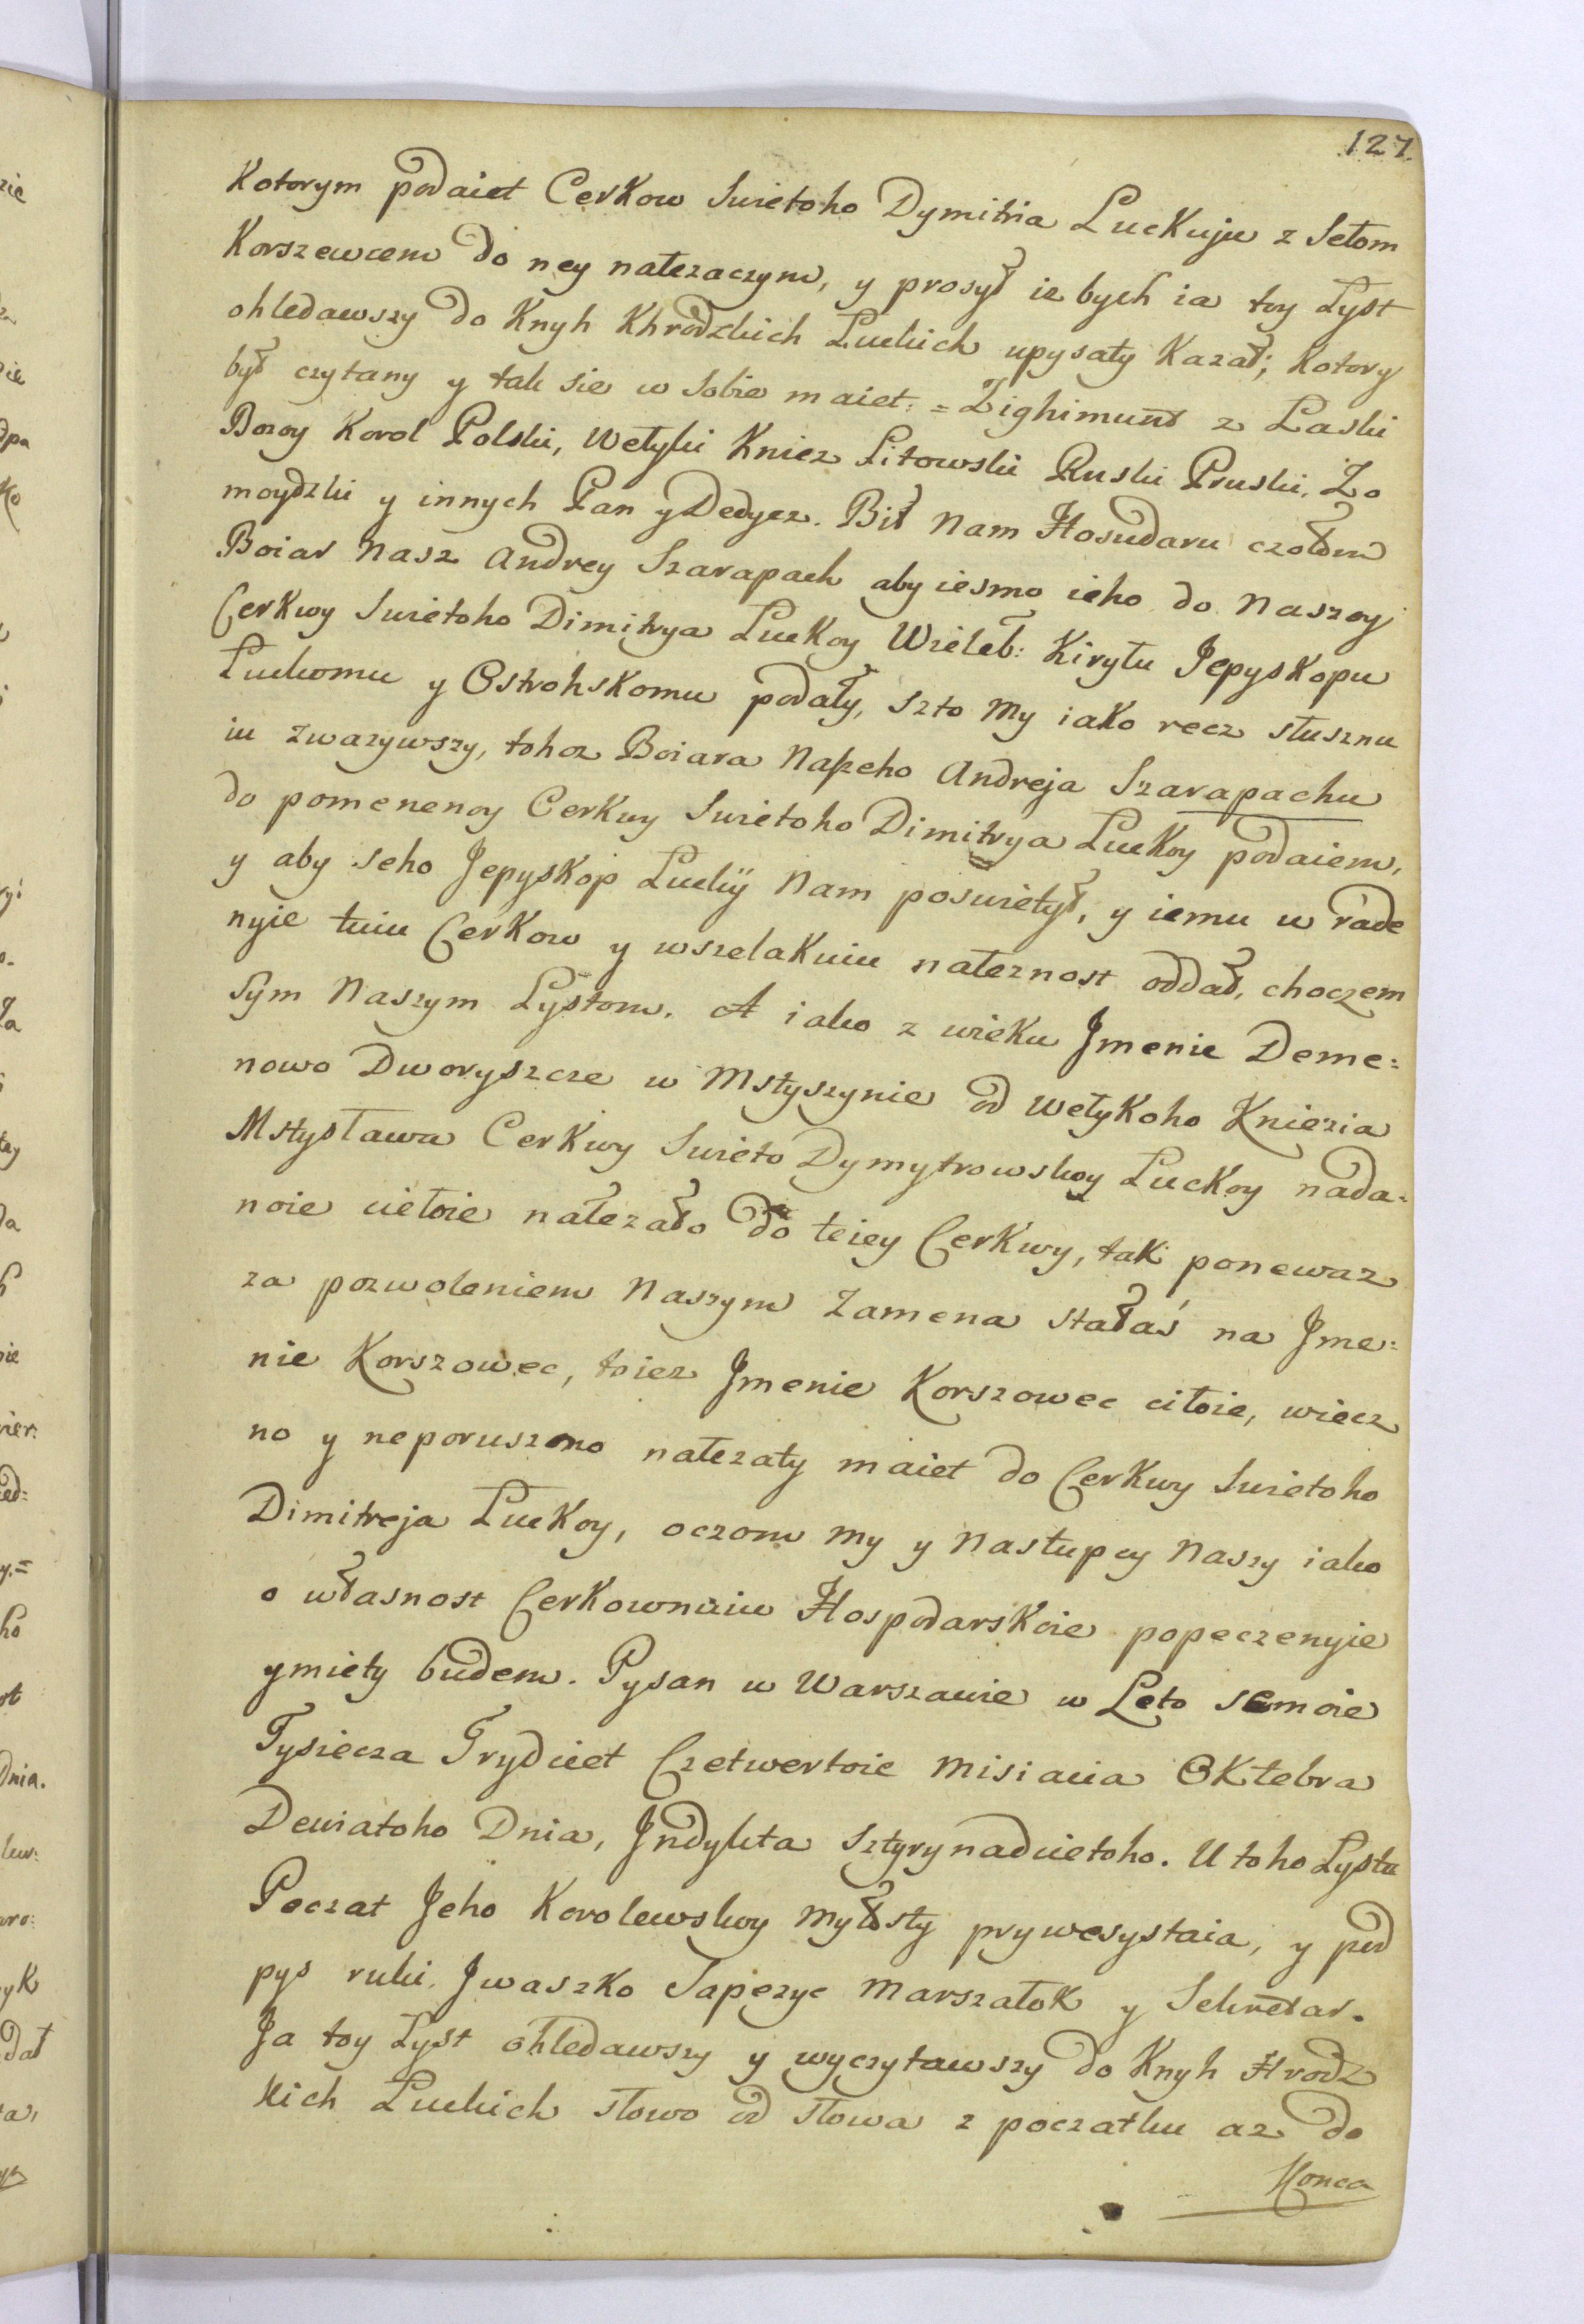 127.
Kotorym podaiet Cerkow Swietoho Dymitria Luckuju z Sełom
Korszewcem do ney nałezaczym, y prosył iz bych ia toy Lyst
ohledawszy do Knyh Khrodzkich Luckich upysaty Kazał; Kotory
był czytany y tak sie w sobie maiet: = Zighimunt z Łaski
Bozoy Korol Polski, Wełyki Kniez Litowski Ruski Pruski, Zo
moydzki y innych Pan y Dedycz. Bił Nam Hosudaru czołom
Boiar Nasz Andrey Szarapach aby iesmo ieho do Naszoy
Cerkwy Swietoho Dimitrya Luckoy Wieleb: Kiryłu Jepyskopu
Łuckomu y Ostrohskomu podały, szto My iako recz słusznu
iu zwazywszy, tohoz Boiara Naszeho Andreja Szarapachu
do pomenenoy Cerkwy Swietoho Dimitrya Luckoy podaiem,
y aby seho Jepyskop Luckij Nam poswietył, y iemu w rade
nyie tuiu Cerkow y wszelakuiu nałeznost oddał, choczem
Sym Naszym Lystom. A iako z wieku Jmenie Deme:
nowo Dworyszcze w Mstyszynie od Wełykoho Kniezia
Mstysława Cerkwy Swieto Dymytrowskoy Luckoy nada:
noie ciełoie nałezało do teiey Cerkwy, tak ponewaz
za pozwoleniem Naszym Zamena stałaś na Jme:
nie Korszowec, toiez Jmenie Korszowec ciłoie, wiecz
no y neporuszono nałezaty maiet do Cerkwy Swietoho
Dimitreja Luckoy, oczom My y Nastupcy Naszy iako
o własnost Cerkownuiu Hospodarskoie popeczenyie
ymiety budem. Pysan w Warszawie w Leto semoie
Tysiecza Trydciet Czetwertoie Misiacia Oktebra
Dewiatoho Dnia, Jndykta Sztyrynadcietoho. U toho Lystu
Peczat Jeho Korolewskoy Myłosty prywesystaia, y pod
pys ruki. Jwaszko Sapezyc Marszałok y Sekretar.
Ja toy Lyst ohledawszy y wyczytawszy do Knyh Hrodz
kich Luckich słowo od słowa z poczatku az do
Konca